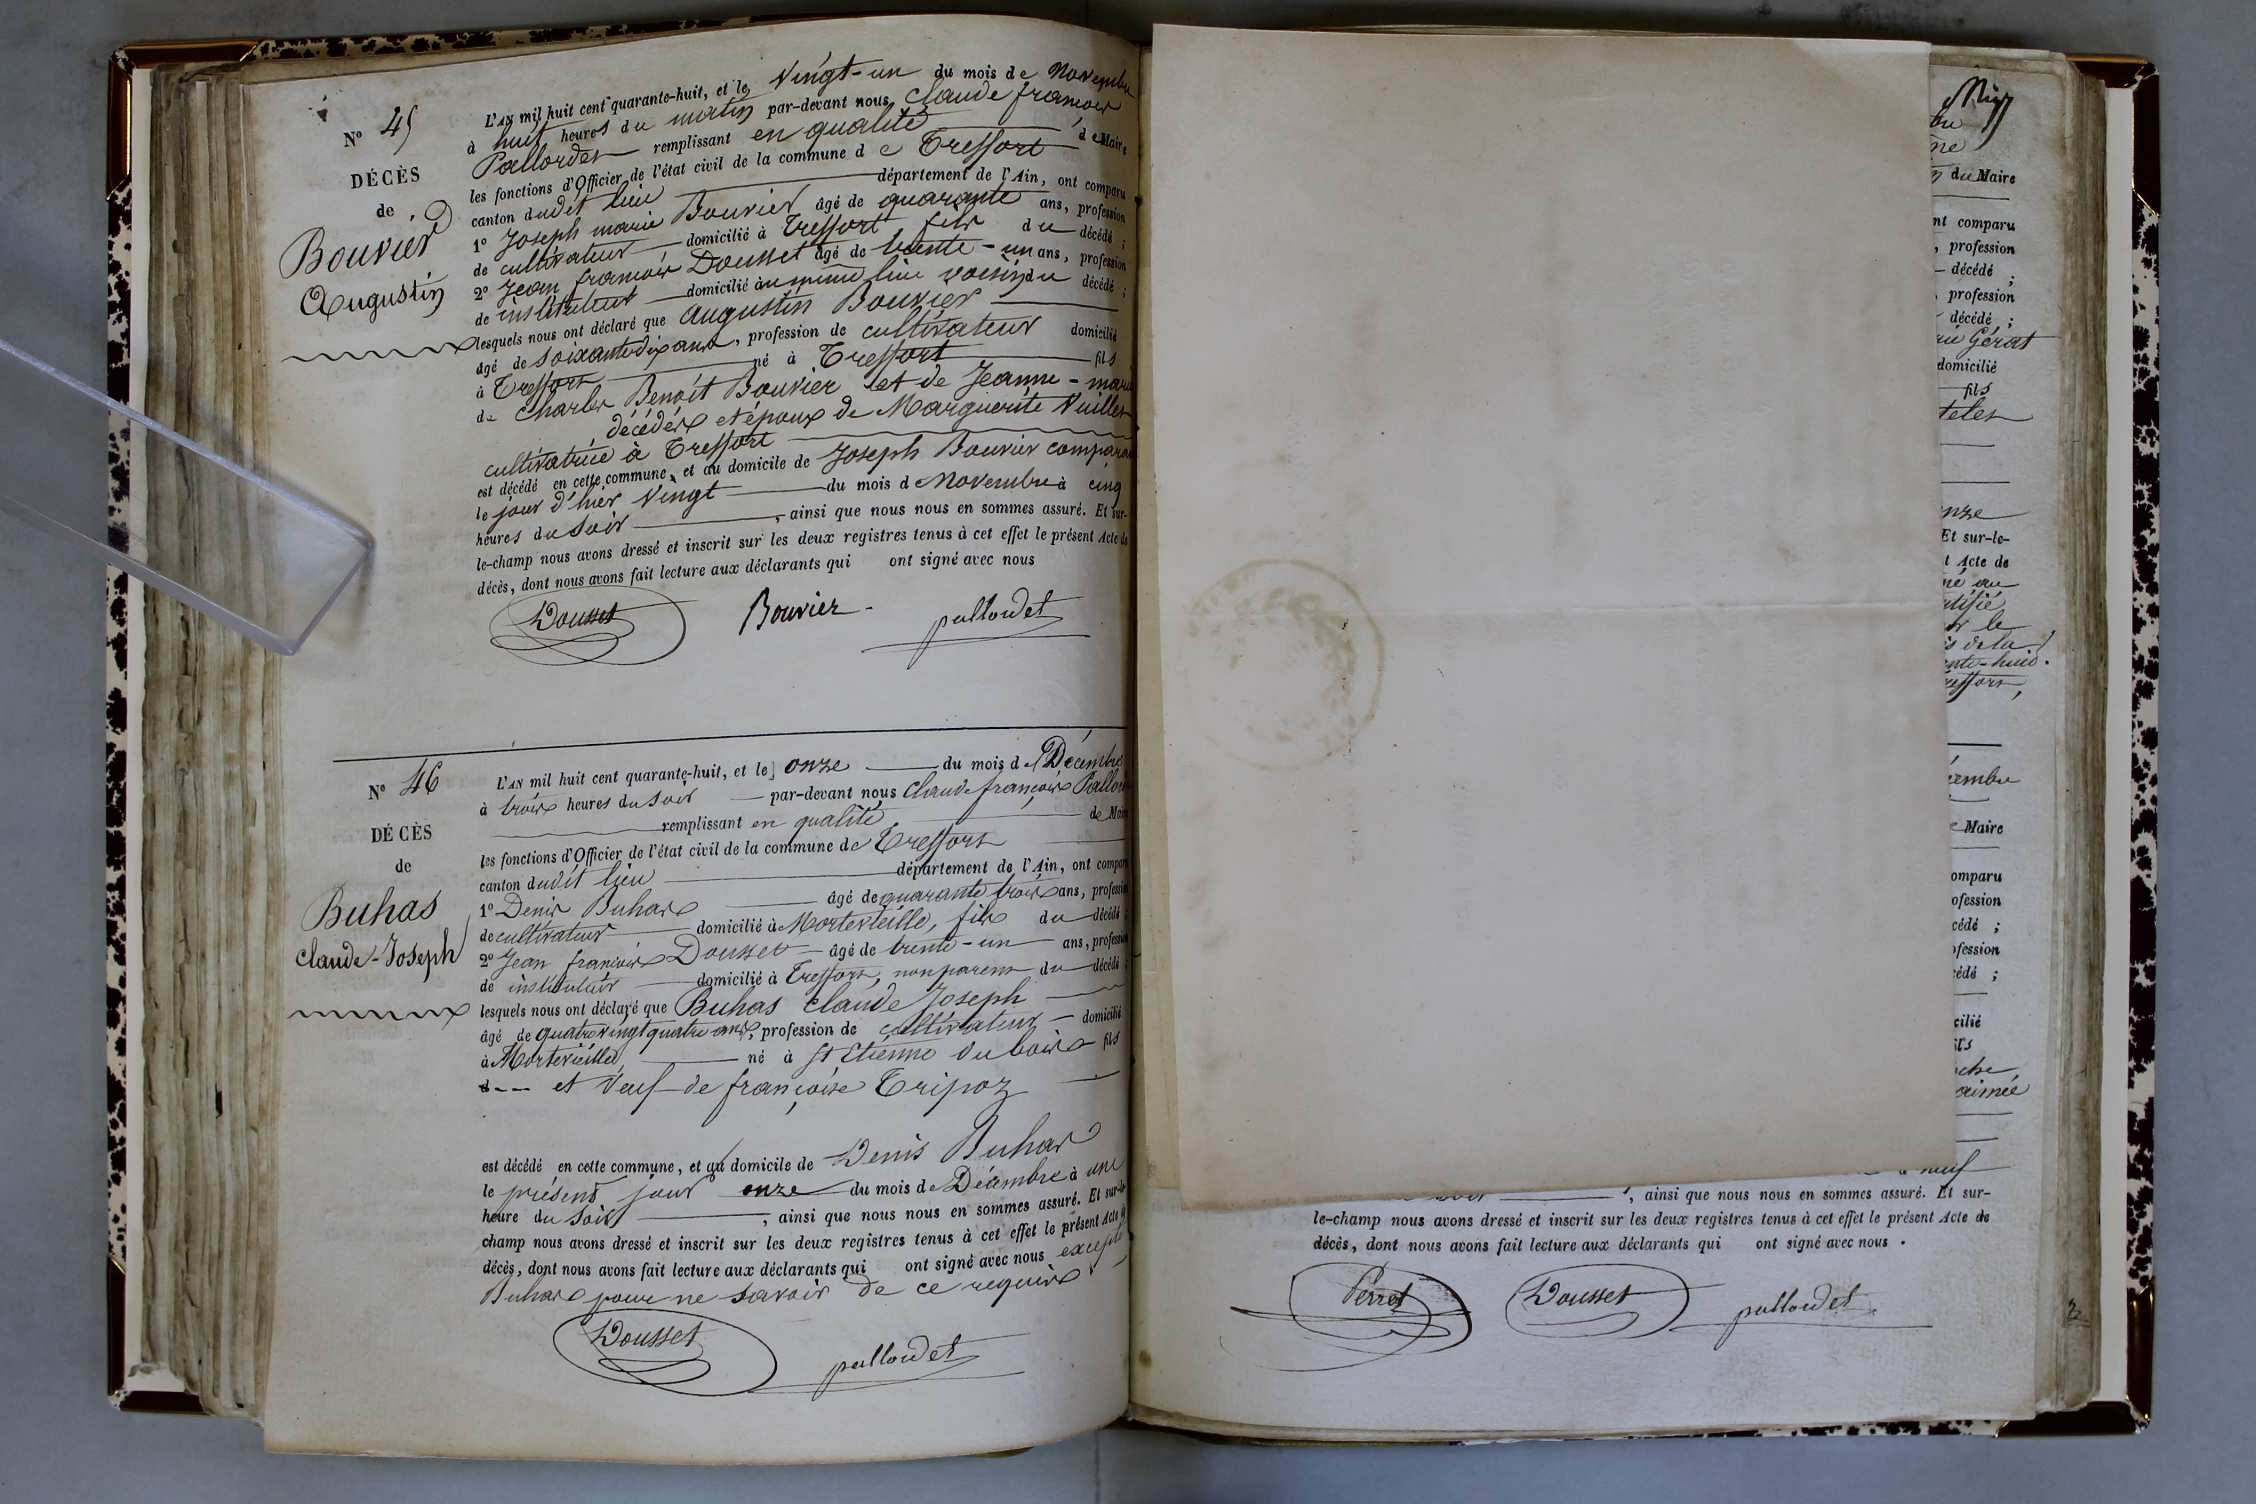 N° 45
DÉCÈS
de
Bouvier
Augustin
L'AN mil huit cent quarante-huit, et le vingt-un du mois de Novembre
à huit heures du matin par-devant nous Claude françois
Palloudet remplissant en qualité de Maire
les fonctions d'Officier de l'état civil de la commune de Treffort
canton dudit lieu département de l'Ain, ont comparu
1° Joseph marie Bouvier âgé de quarante ans, profession
de cultivateur domicilié à Treffort fils du décédé ;
2° Jean françois Dousset âgé de trente-un ans, profession
de instituteur domicilié au même lieu voisin du décédé ;
lesquels nous ont déclaré que Augustin Bouvier
âgé de soixante dix ans, profession de cultivateur domicilié
à Treffort né à Treffort fils
de Charles Benoît Bouvier et de Jeanne-marie
décédés et époux de Marguerite Vuillet
cultivatrice à Treffort
est décédé en cette commune, et au domicile de Joseph Bouvier comparant
le jour d'hier vingt du mois de Novembre à cinq
heures du soir, ainsi que nous nous en sommes assuré. Et sur-
le-champ nous avons dressé et inscrit sur les deux registres tenus à cet effet le présent Acte de
décès, dont nous avons fait lecture aux déclarants qui ont signé avec nous
Dousset Bouvier palloudet
N° 46
DÉCÈS
de
Buhas
Claude-Joseph
L'AN mil huit cent quarante-huit, et le onze du mois de Décembre
à trois heures du soir par-devant nous Claude françois Palloudet
remplissant en qualité de Maire
les fonctions d'Officier de l'état civil de la commune de Treffort
canton dudit lieu département de l'Ain, ont comparu
1° Denis Buhas âgé de quarante trois ans, profession
de cultivateur domicilié à Morterieille, fils du décédé ;
2° Jean françois Dousset âgé de trente-un ans, profession
de instituteur domicilié à Treffort, non parent du décédé ;
lesquels nous ont déclaré que Buhas Claude Joseph
âgé de quatre vingt quatre ans, profession de cultivateur domicilié
à Morterieille, né à St Etienne du bois fils
d-- et veuf de françoise Tripoz
est décédé en cette commune, et au domicile de Denis Buhas
le présent jour onze du mois de Décembre à une
heure du soir, ainsi que nous nous en sommes assuré. Et sur-le-
champ nous avons dressé et inscrit sur les deux registres tenus à cet effet le présent Acte de
décès, dont nous avons fait lecture aux déclarants qui ont signé avec nous excepté
Buhas pour ne savoir de ce requis
Dousset palloudet
du Maire
nt comparu
, profession
décédé ;
, profession
décédé ;
Gérat
domicilié
fils
onze
Et sur-le-
t Acte de
le
de la
nte-huit.
Treffort,
cembre
Maire
omparu
ofession
cédé ;
ofession
cédé ;
cilié
ils
aimée
neuf
, ainsi que nous nous en sommes assuré. Et sur-
le-champ nous avons dressé et inscrit sur les deux registres tenus à cet effet le présent Acte de
décès, dont nous avons fait lecture aux déclarants qui ont signé avec nous.
Perret Dousset palloudet